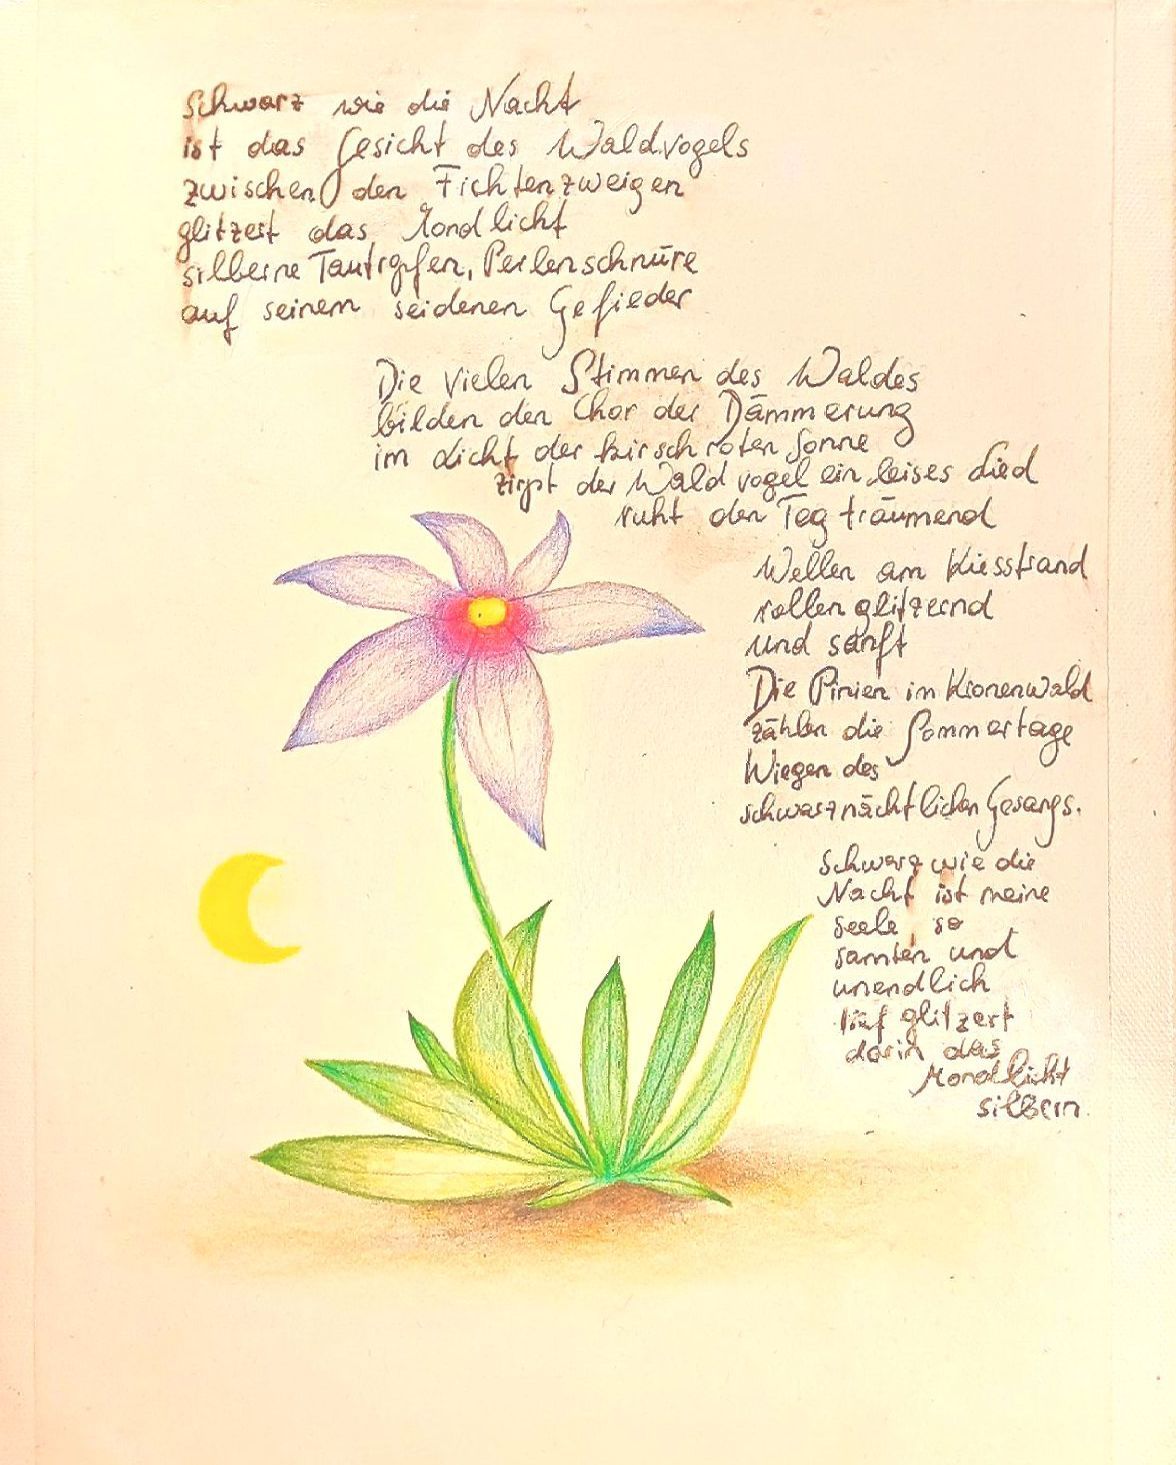 Schwarz wie die Nacht
ist das Gesicht des Waldvogels
zwischen den Fichtenzweigen
glitzert das Mondlicht
silberne Tautropfen, Perlenschnüre
auf seinem seidenen Gefieder
Die vielen Stimmen des Waldes
bilden den Chor der Dämmerung
im Licht der kirschroten Sonne
zirpt der Waldvogel ein leises Lied
ruht den Tag träumend
Wellen am Kiesstrand
rollen glitzernd
und sanft
Die Pinien im Kronenwald
zählen die Sommertage
Wiegen des
schwarznächtlichen Gesangs.
Schwarz wie die
Nacht ist meine
Seele, so
samten und
unendlich
tief glitzert
darin das
Mondlicht
silbern